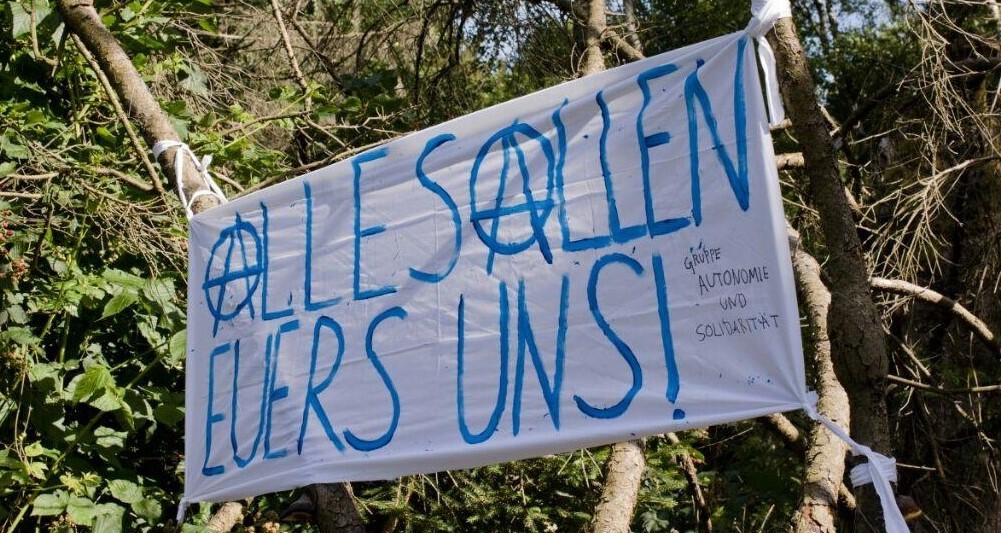 ALLE SALLEN
EUERS UNS!
GRUPPE
AUTONOMIE
UND
SOLIDARITÄT